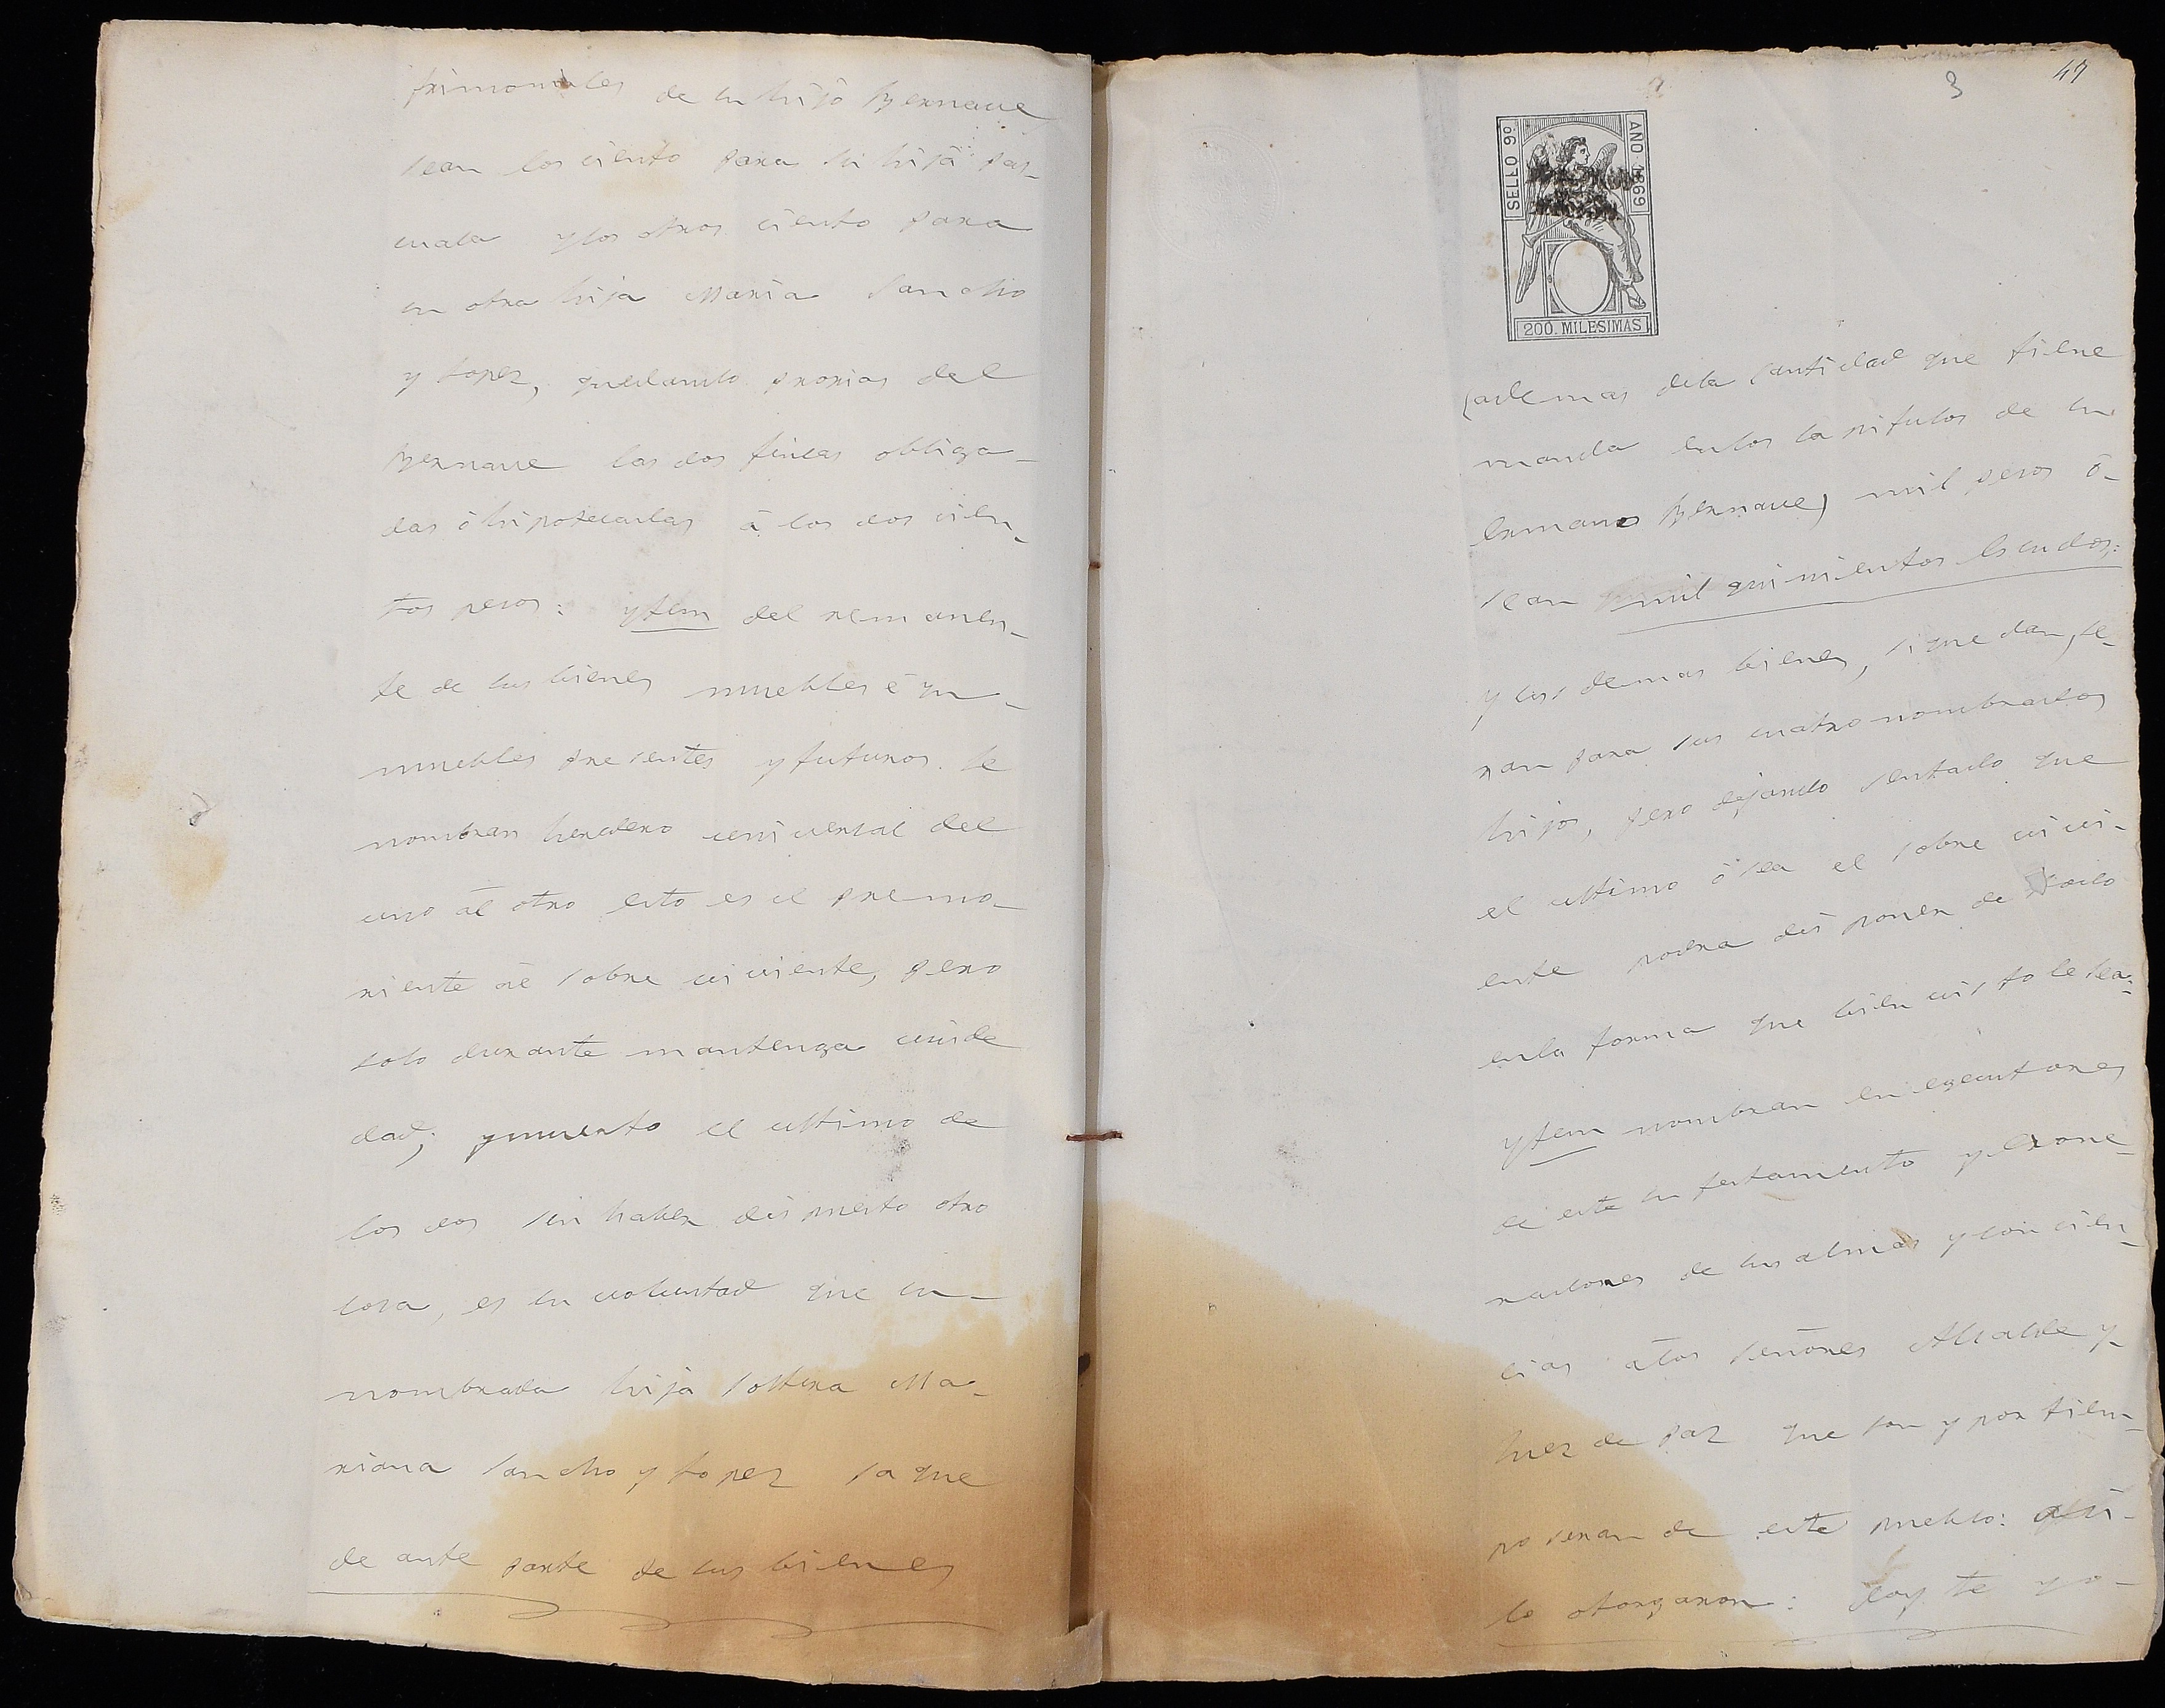 trimoniales de su hijo Bernave
sean los ciento para su hija pas-
cuala y los otros ciento para
su otra hija Maria Sancho
y Lopez, quedando propias del
Bernave las dos fincas obliga-
das ó hipotecadas á los dos cien-
tos pesos: ytem del remanen-
te de sus bienes muebles é yn-
muebles presentes y futuros se
nombran heredero universal del
uno al otro esto es el premo-
riente al sobre viviente, pero
solo durante mantenga viude
dad; y muerto el ultimo de
los dos sin haber dispuesto otra
cosa, es su voluntad que su
nombrada hija soltera Ma-
riana Sancho y Lopez saque
de ante parte de sus bienes
3 47
SELLO 9º AÑO 1869
200. MILESIMAS
(ademas dela cantidad que tiene
manda enlos capitulos de su
ermano Bernave) mil pesos ó
sean mil quinientos escudos:
y los demas bienes, si quedan, se-
ran para sus cuatro nombrados
hijos, pero dejando sentado que
el ultimo ó sea el sobre vivi-
ente podra disponer de todo
enla forma que bien visto le sea:
ytem nombran en egecutores
de este su testamento y exone-
radores de sus almas y concien-
cias álos señores Alcalde y
Juez de paz que son y por tiem-
po seran de este pueblo: asi
lo otorgaron: doy fe yo